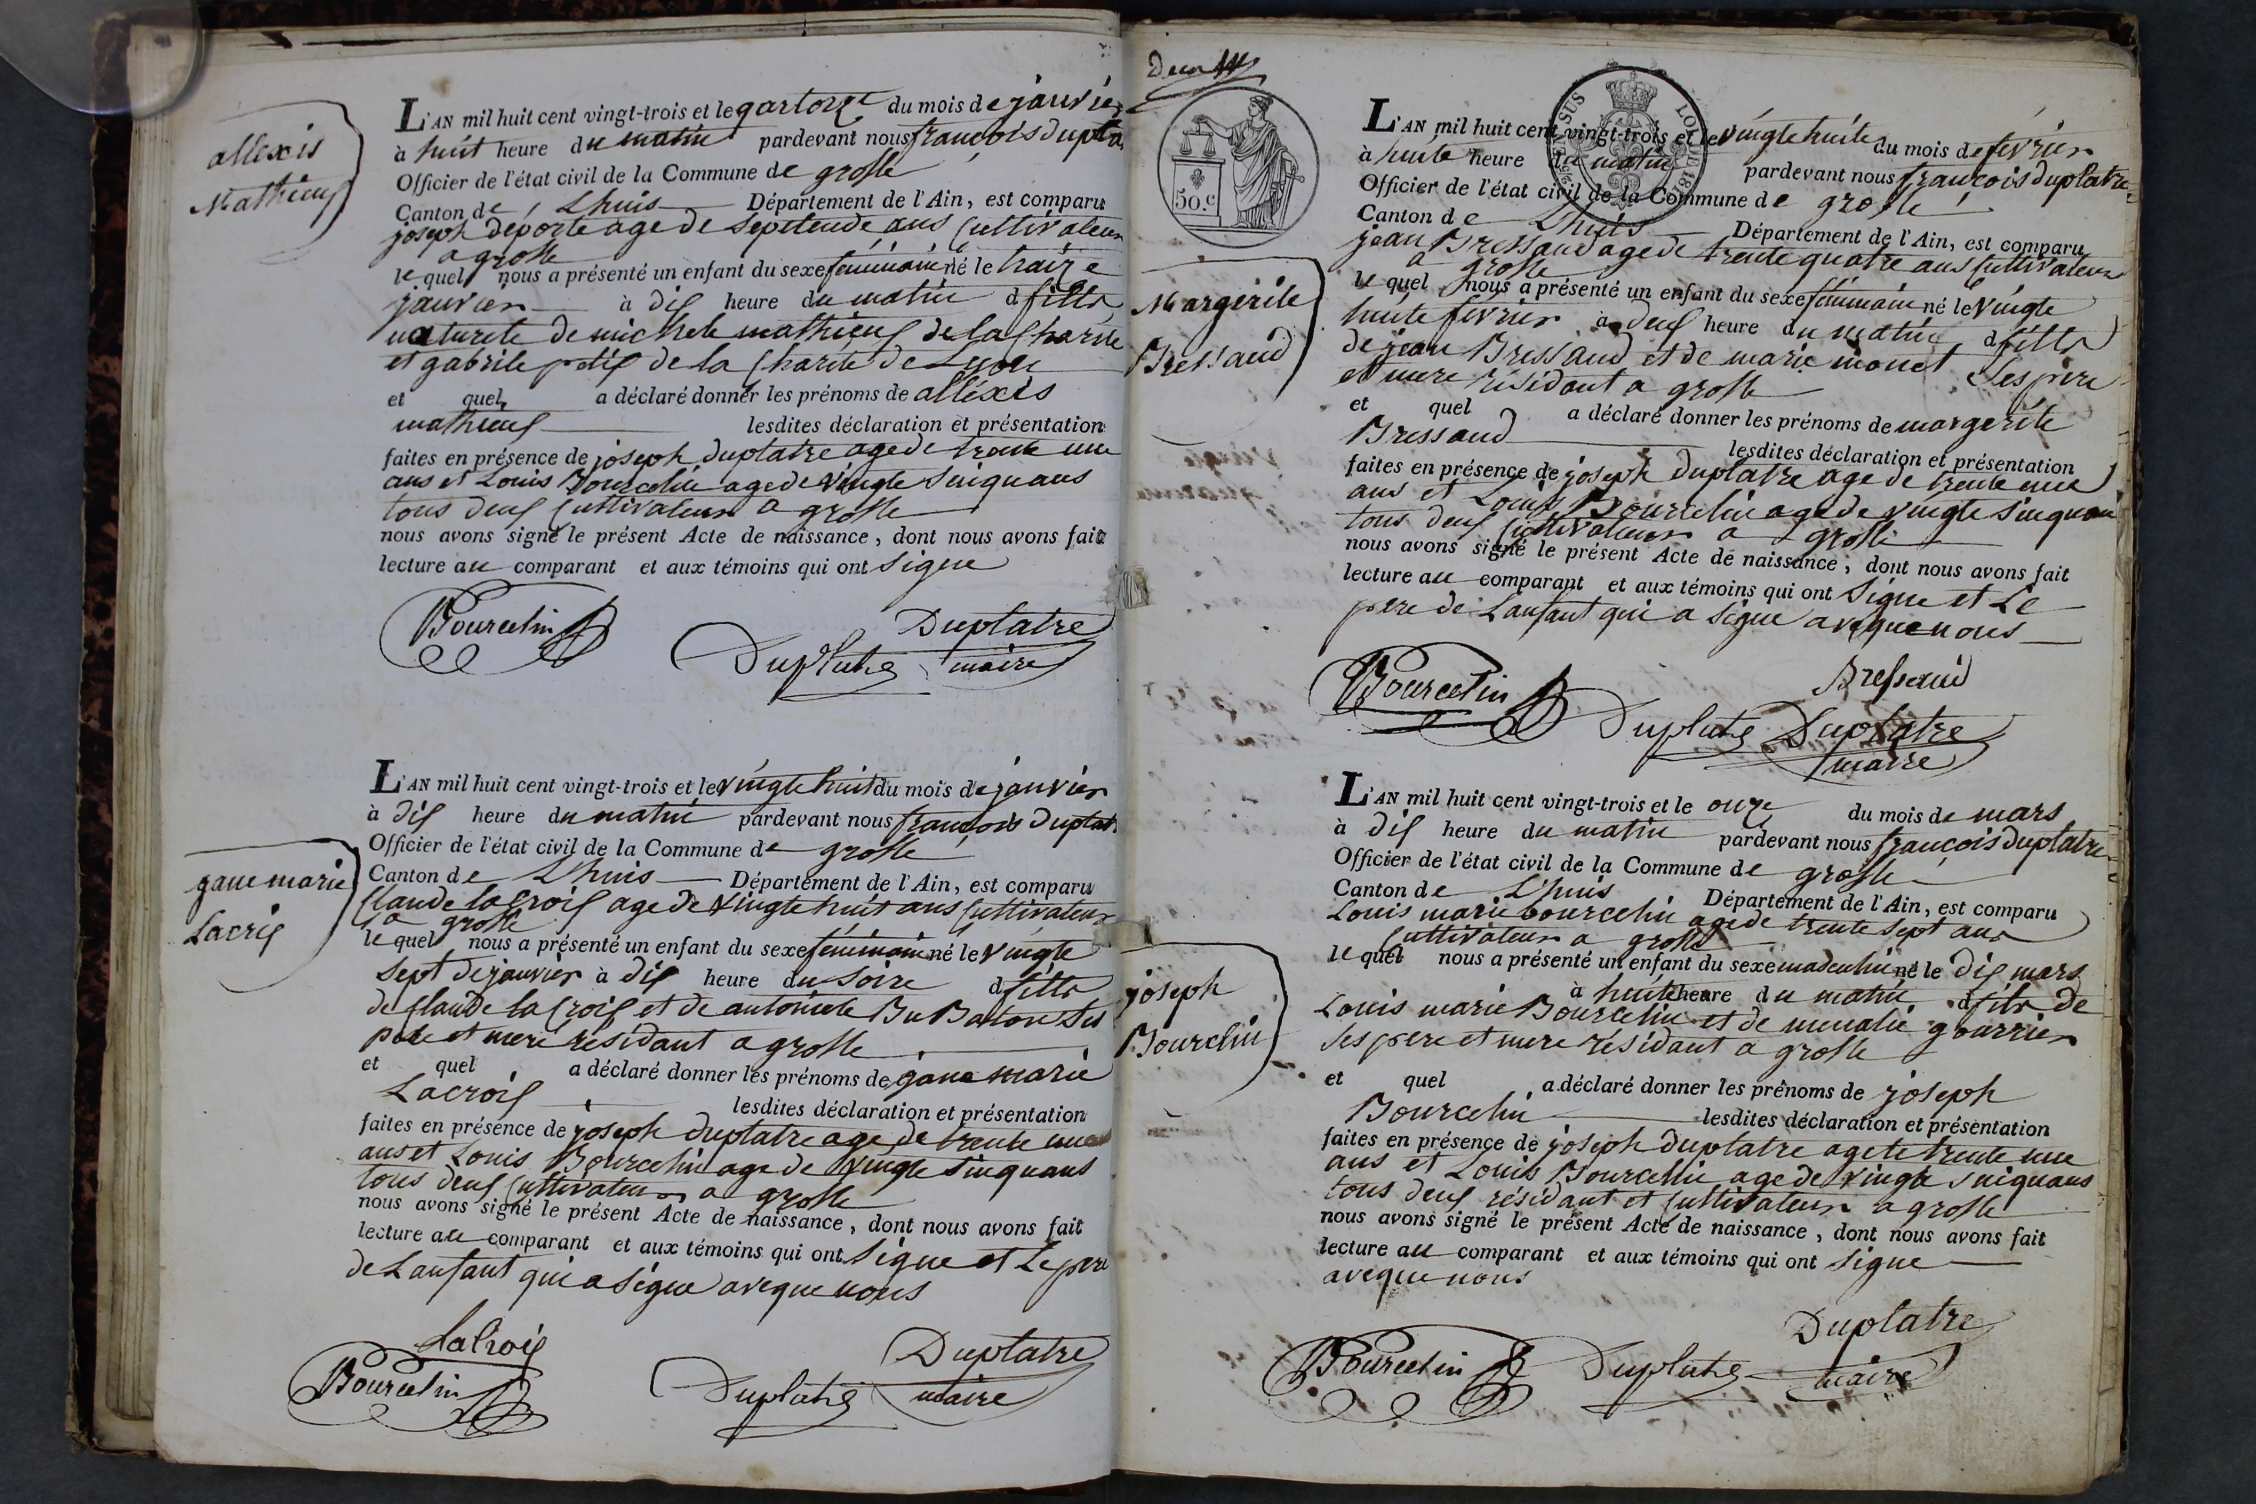 allexis
Mathieux
L'AN mil huit cent vingt-trois et le qartorze du mois de janvier
à huit heure du matin pardevant nous françois duplatre
Officier de l'état civil de la Commune de grosle
Canton de Lhuis Département de l'Ain, est comparu
joseph déporte age de ans Cultivateur
a grosle
le quel nous a présenté un enfant du sexe féminain né le traize
janvier à dix heure du matin d fille
naturele de michele mathieux de la Charite
et gabrile petix de la Charite de Lyon
et quel a déclaré donner les prénoms de alléxis
mathieux lesdites déclaration et présentation
faites en présence de joseph duplatre age de trente une
ans et Louis Bourcelin age de vingte sinquans
tous deux Cultivateur a grosle
nous avons signé le présent Acte de naissance, dont nous avons fait
lecture au comparant et aux témoins qui ont signe
Bourcelin Duplatre
Duplatre maire
gane marie
Lacrix
L'AN mil huit cent vingt-trois et le vingte huit du mois de janvier
à dix heure du matin pardevant nous françois duplatre
Officier de l'état civil de la Commune de grosle
Canton de Lhuis Département de l'Ain, est comparu
Claude lacroix age de vingte huit ans Cultivateur
a grosle
le quel nous a présenté un enfant du sexe féminain né le vingte
sept de janvier à dix heure du soire d fille
de Claude la Croix et de antoinete Bu Baton ses
pere et mere résidant a grosle
et quel a déclaré donner les prénoms de gane marie
Lacroix lesdites déclaration et présentation
faites en présence de joseph duplatre age de trente une
ans et Louis Bourcelin age de vingte sinquans
tous deux Cultivateur a grosle
nous avons signé le présent Acte de naissance, dont nous avons fait
lecture au comparant et aux témoins qui ont signe et le pere
de Lanfant qui a signe aveque nous
LaCroix
Bourcelin Duplatre
Duplatre maire
50.c
LOI DE 1816
Margerite
Bressaud
L'AN mil huit cent vingt-trois et le vingte huite du mois de fevrier
à huite heure du matin pardevant nous françois duplatre
Officier de l'état civil de la Commune de grosle
Canton de Lhuis Département de l'Ain, est comparu
jean Bressaud age de trente quatre ans Cultivateur
a grosle
le quel nous a présenté un enfant du sexe féminain né le vingte
huite fevrier à deux heure du matin d fille
de jean Bressaud et de marie monet ses pere
et mere résidant a grosle
et quel a déclaré donner les prénoms de margerite
Bressaud lesdites déclaration et présentation
faites en présence de joseph duplatre age de trente une
ans et Louis Bourcelin age de vingte sinquan
tous deux Cultivateur a grosle
nous avons signé le présent Acte de naissance, dont nous avons fait
lecture au comparant et aux témoins qui ont signe et le
pere de Lanfant qui a signe aveque nous
Bressaud
Bourcelin Duplatre Duplatre
maire
joseph
Bourclin
L'AN mil huit cent vingt-trois et le onze du mois de mars
à dix heure du matin pardevant nous françois duplatre
Officier de l'état civil de la Commune de grosle
Canton de Lhuis Département de l'Ain, est comparu
Louis marie bourcelin age de trente sept ans
Cultivateur a grosle
le quel nous a présenté un enfant du sexe masculin né le dix mars
à huite heure du matin d fils de
Louis marie Bourcelin et de gourrier
ses pere et mere résidant a grosle
et quel a déclaré donner les prénoms de joseph
Bourcelin lesdites déclaration et présentation
faites en présence de joseph duplatre age te trente une
ans et Louis Bourcelin age de vingte sinquans
tous deux résidant et Cultivateur a grosle
nous avons signé le présent Acte de naissance, dont nous avons fait
lecture au comparant et aux témoins qui ont signe
aveque nous
Duplatre
Bourcelin Duplatre maire